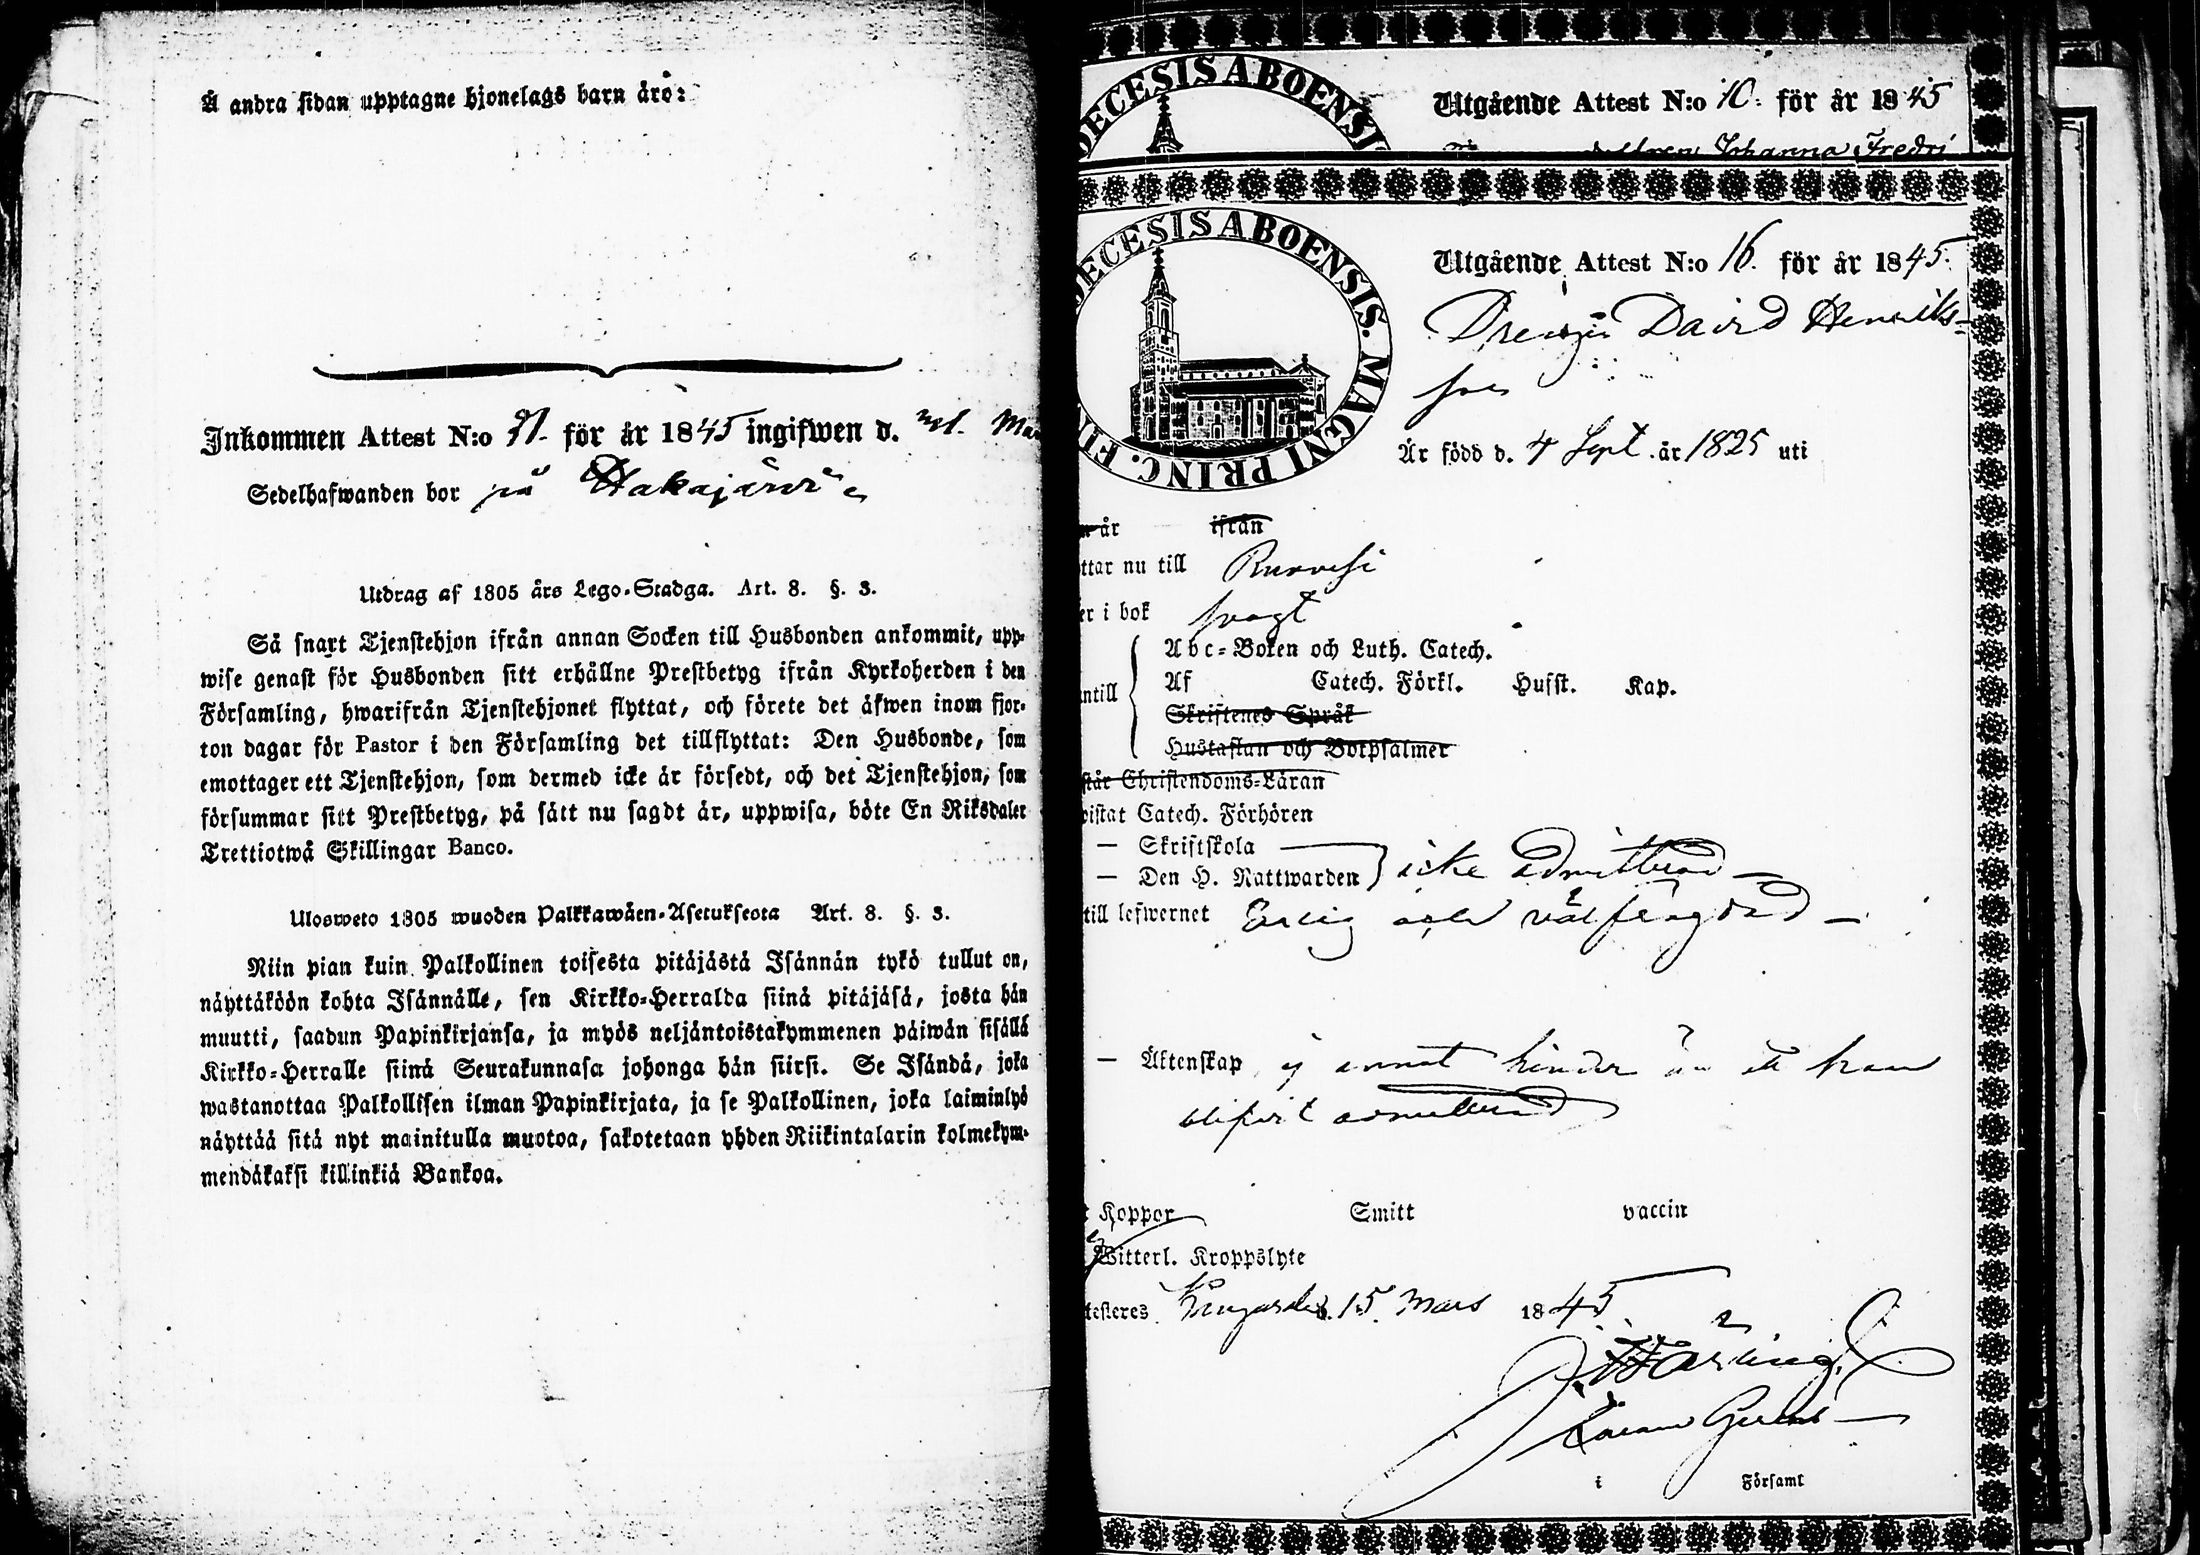 Å andra sidan upptagne hjonelags barn äro:
Inkommen Attest N:o 31. för år 1845 ingifwen d.
Sedelhafwanden bor på Hakajärvi
Utdrag af 1805 års Lego-Stadga. Art. 8. §. 3.
Så snart Tjenstehjon ifrån annan Socken till Husbonden ankommit, upp-
wise genast för Husbonden sitt erhållne Prestbetyg ifrån Kyrkoherden i den
Församling, hwarifrån Tjenstehjonet flyttat, och förete det äfwen inom fjor-
ton dagar för Pastor i den Församling det tillflyttat: Den Husbonde, som
emottager ett Tjenstehjon, som dermed icke är försedt, och det Tjenstehjon, som
försummar sitt Prestbetyg, på sätt nu sagdt är, uppwisa, böte En Riksdaler
Trettiotwå Skillingar Banco.
Ulosweto 1805 wuoden Palkkawäen-Asetuksesta Art. 8. §. 3.
Niin pian kuin Palkollinen toisesta pitäjästä Isännän tykö tullut on,
näyttäköön kohta Isännälle, sen Kirkko-Herralda siinä pitäjäsä, josta hän
muutti, saadun Papinkirjansa, ja myös neljäntoistakymmenen päiwän sisällä
Kirkko-Herralle siinä Seurakunnasa johonga hän siirsi. Se Isändä, joka
wastanottaa Palkollisen ilman Papinkirjata, ja se Palkollinen, joka laiminlyö
näyttää sitä nyt mainitulla muotoa, sakotetaan yhden Riikintalarin kolmekym-
mendäkaksi killinkiä Bankoa.
DECESIS ABOENSI
Utgående Attest N:o 10. för år 1845
Johanna Fredri
DECESIS ABOENSIS. MAGNI PRINC. FI
Utgående Attest N:o 16. för år 1845.
Drengen David Henriks-
son
Är född d. 4 Sept. år 1825 uti
år ifrån
ttar nu till Ruovesi
er i bok svagt
Abc-Boken och Luth. Catech.
ntill Af Catech. Förkl. Husst. Kap.
Skriftenes Språk
Hustaflan och Botpsalmer
står Christendoms-Läran
vistat Catech. Förhören
— Skriftskola
— Den H. Nattwarden } icke admitterad —
till lefwernet Ärlig och välfrägdad —
— Äktenskap ej annat hinder än att han
blifvit admitterad
Koppor Smitt vaccin
Witterl. Kroppslyte
testeres d. 15. Mars 1845
i Församl